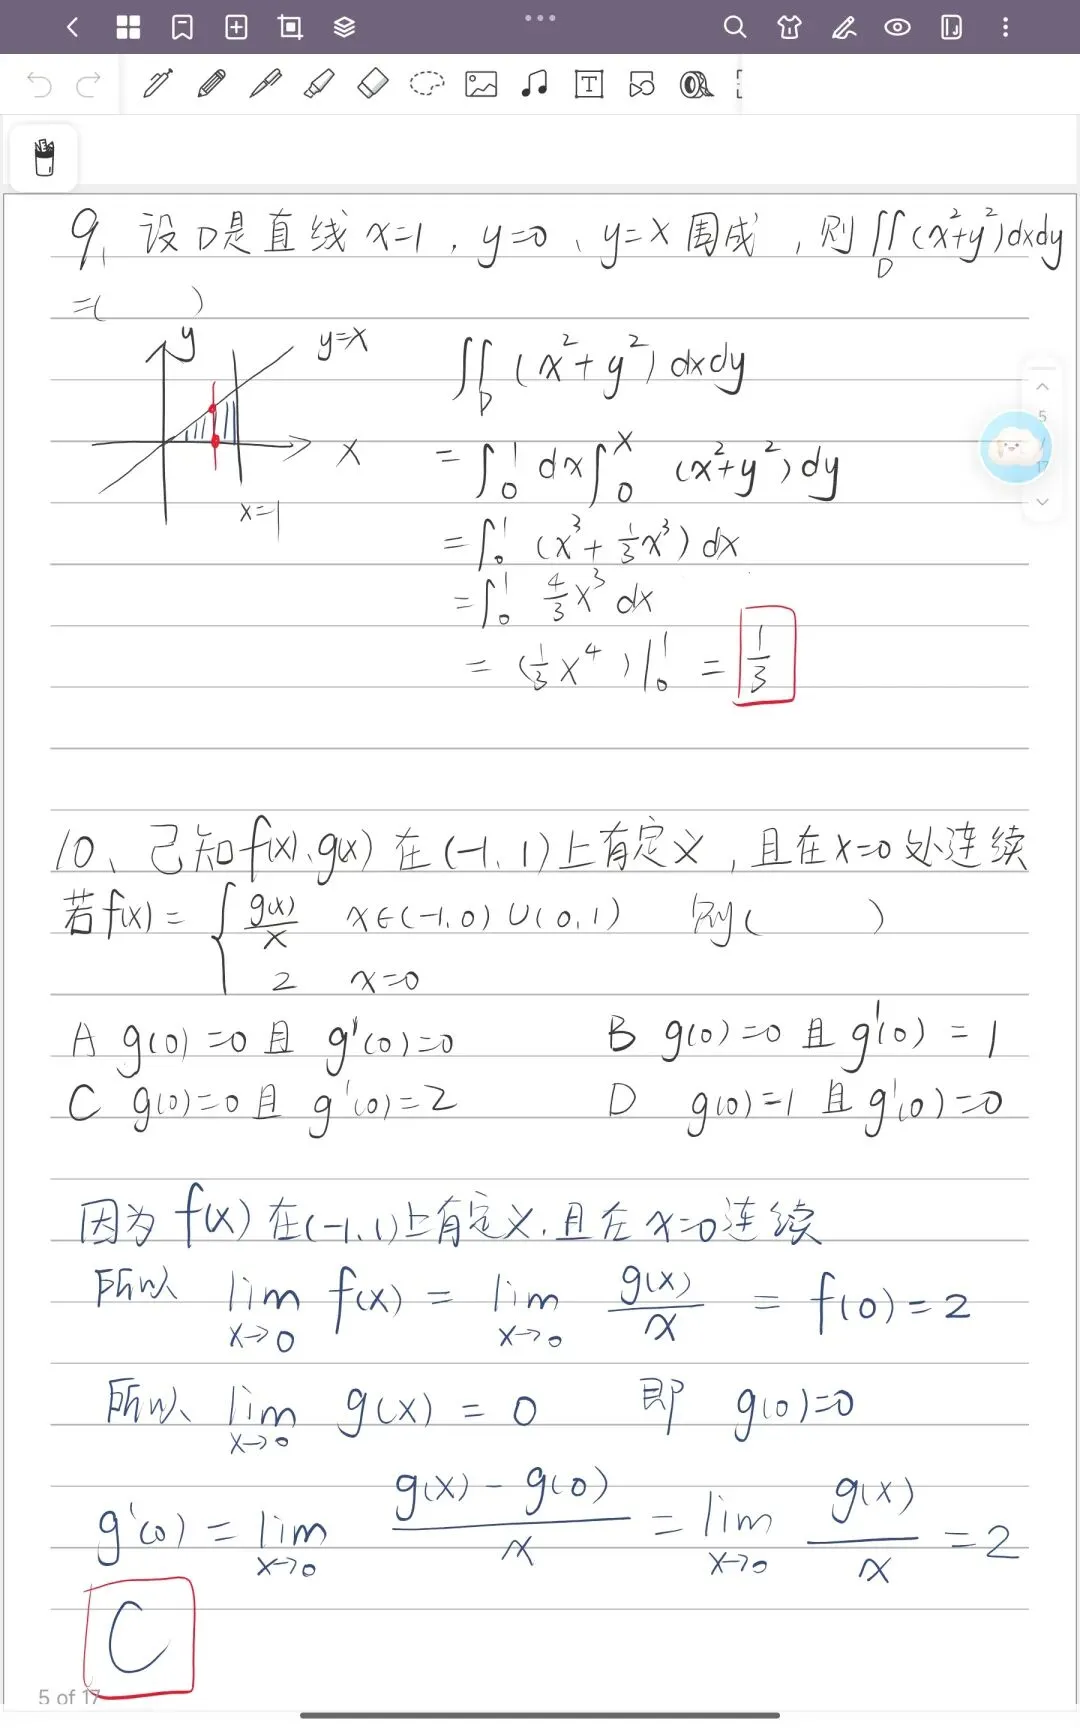 9、设D是直线x=1，y=0、y=x围成，则∬_D(x²+y²)dxdy
=(    )
y
y=x
x
x=1
∬_D (x²+y²)dxdy
=∫₀¹dx∫₀ˣ (x²+y²)dy
=∫₀¹ (x³+⅓x³)dx
=∫₀¹ 4/3 x³ dx
=(⅓x⁴)|₀¹ = 1/3
10、已知f(x)、g(x)在(-1,1)上有定义，且在x=0处连续
若f(x)={ g(x)/x  x∈(-1,0)∪(0,1)  则(    )
2  x=0
A g(0)=0且g'(0)=0  B g(0)=0且g'(0)=1
C g(0)=0且g'(0)=2  D g(0)=1且g'(0)=0
因为f(x)在(-1,1)上有定义,且在x=0连续
所以 lim x→0 f(x) = lim x→0 g(x)/x = f(0)=2
所以 lim x→0 g(x) = 0  即 g(0)=0
g'(0) = lim x→0 (g(x)-g(0))/x = lim x→0 g(x)/x = 2
C
5 of 17
5
/
17